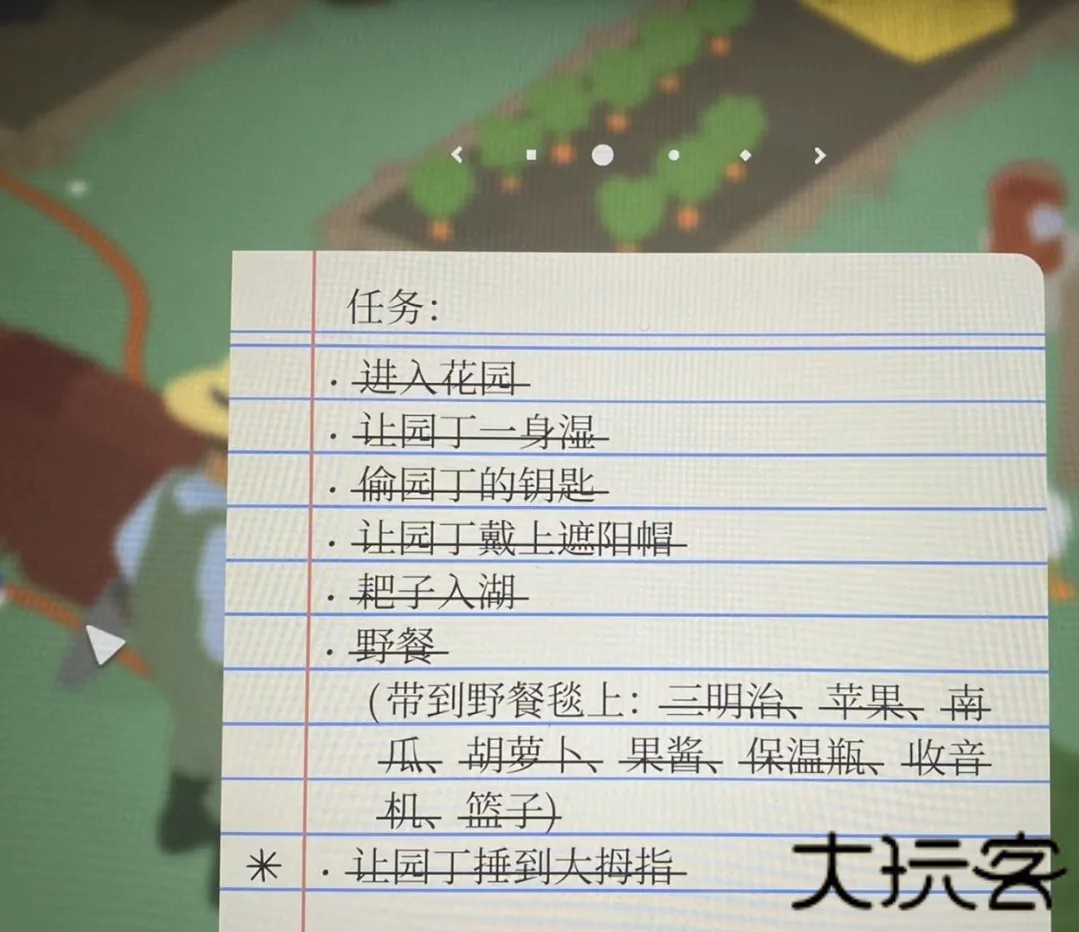 任务：
· 进入花园
· 让园丁一身湿
· 偷园丁的钥匙
· 让园丁戴上遮阳帽
· 耙子入湖
· 野餐
(带到野餐毯上：三明治、苹果、南
瓜、胡萝卜、果酱、保温瓶、收音
机、篮子)
· 让园丁捶到大拇指
大玩客